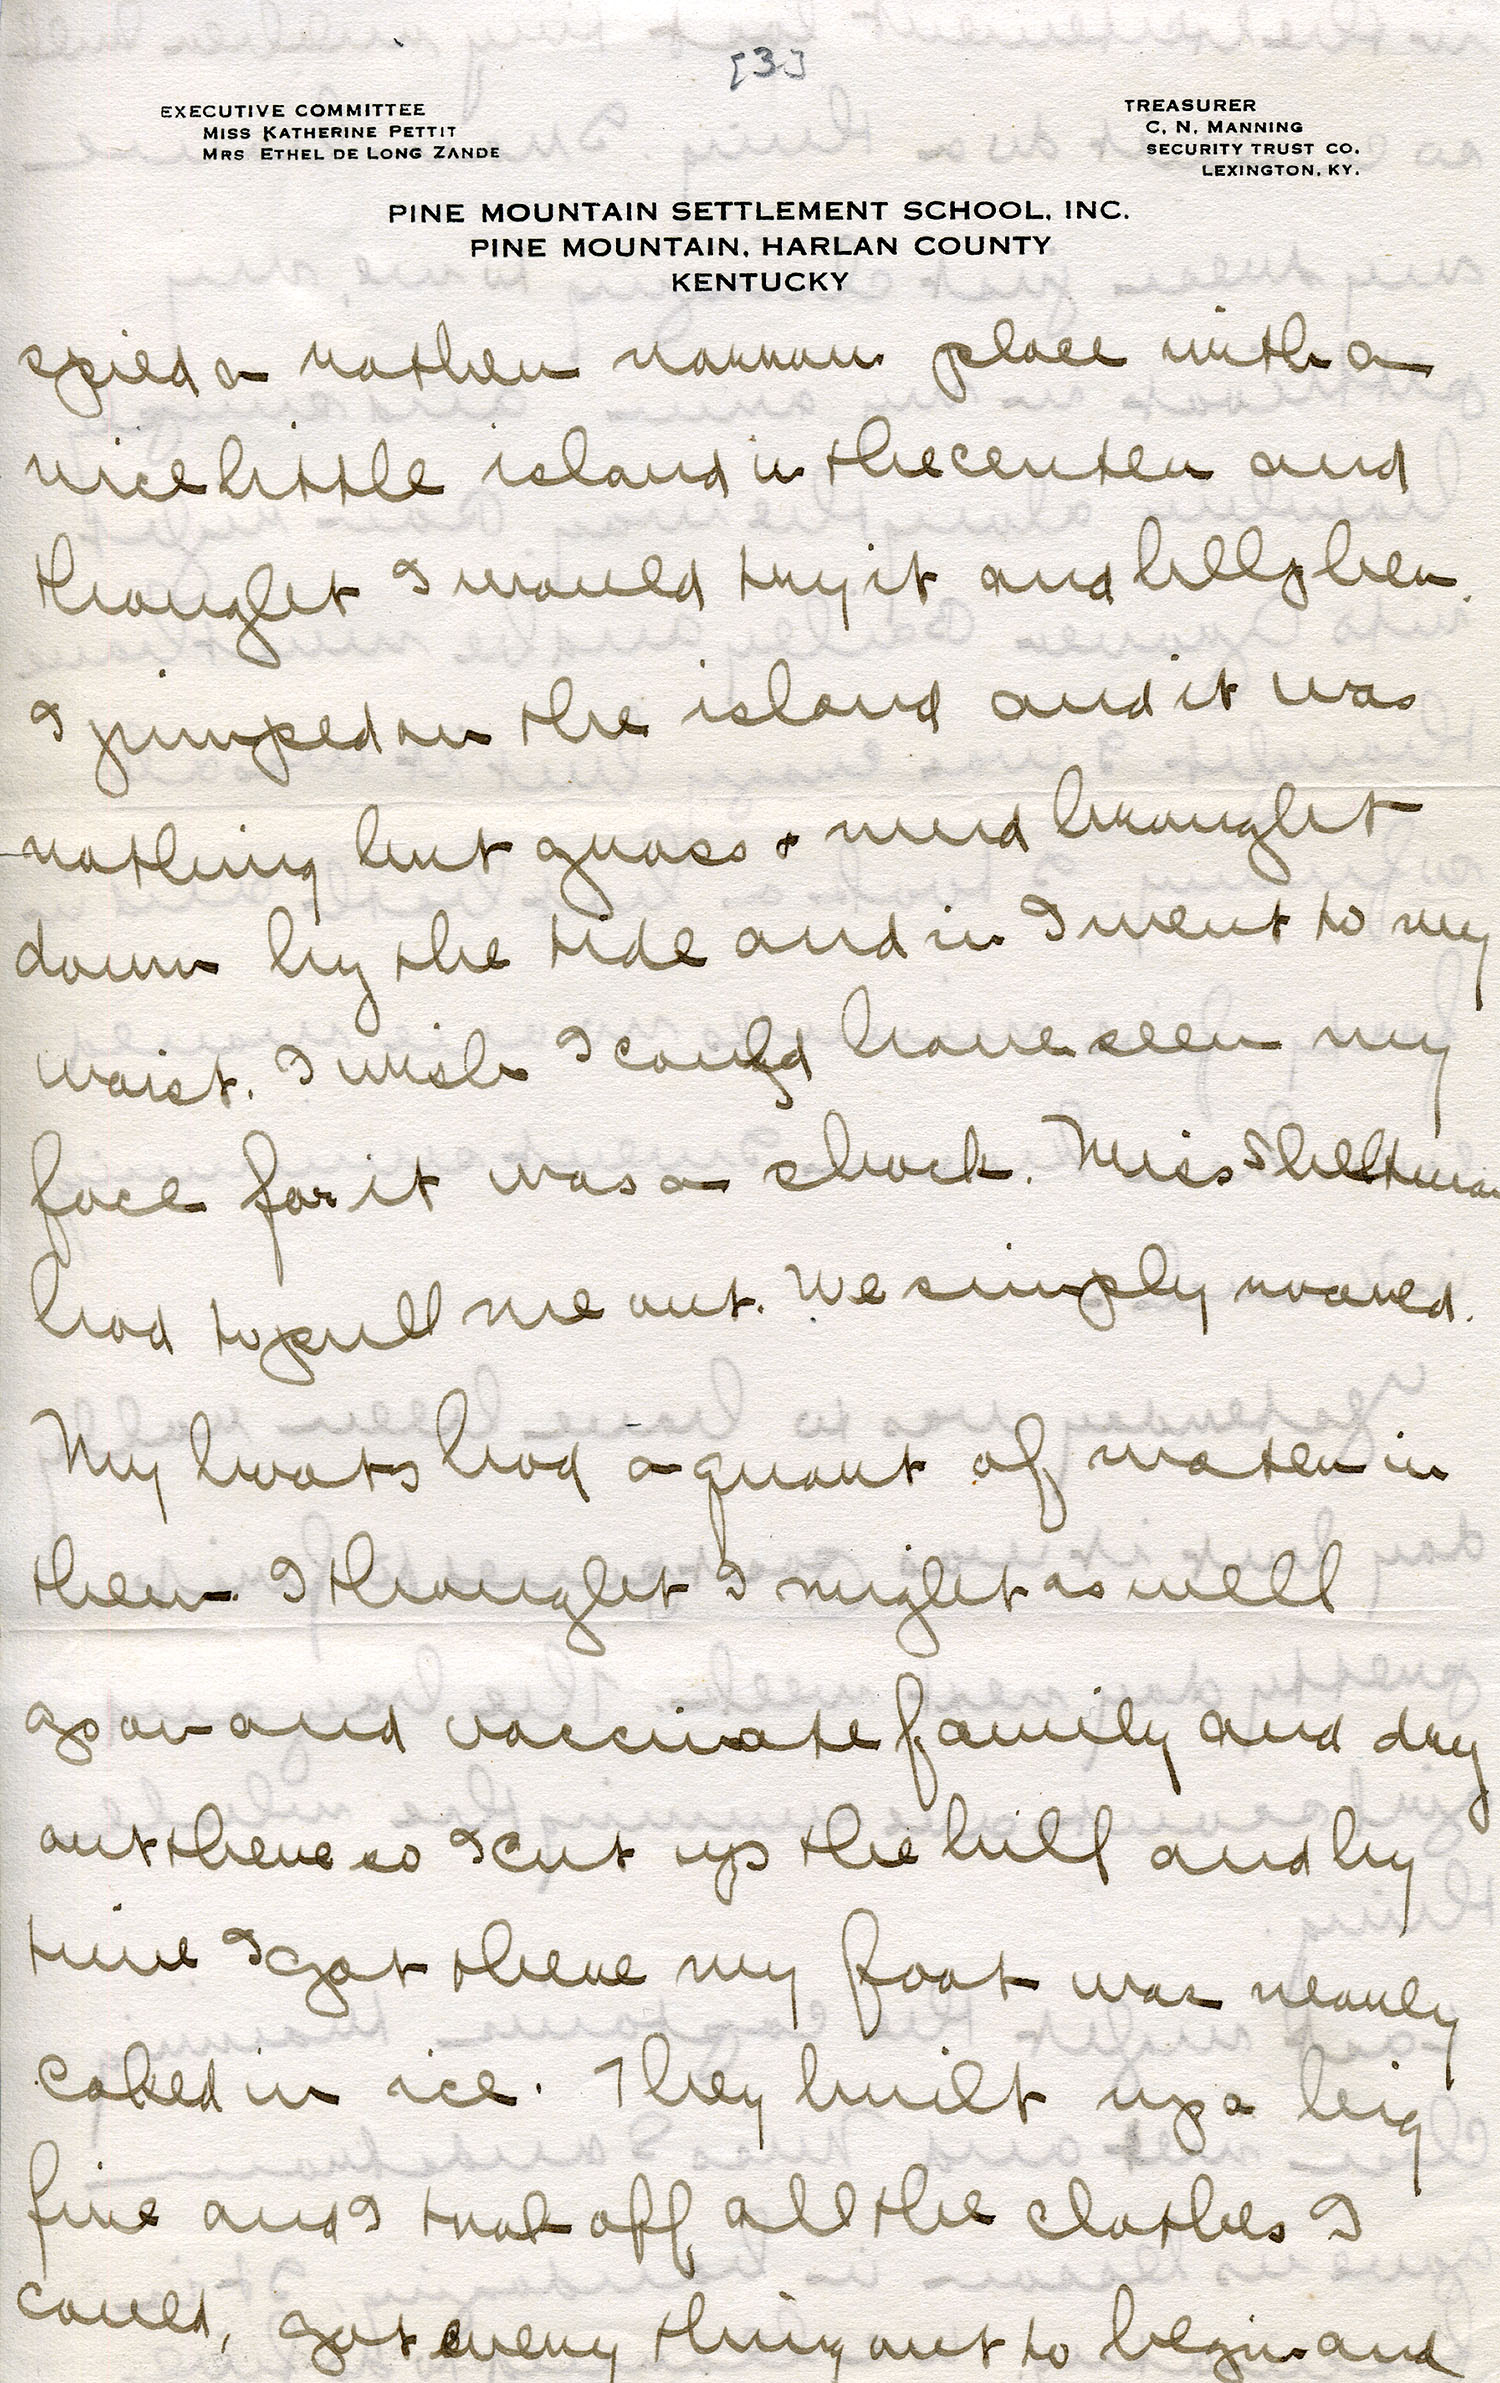 [3]
EXECUTIVE COMMITTEE
MISS KATHERINE PETTIT
MRS ETHEL DE LONG ZANDE
TREASURER
C. N. MANNING
SECURITY TRUST CO.
LEXINGTON, KY.
PINE MOUNTAIN SETTLEMENT SCHOOL, INC.
PINE MOUNTAIN, HARLAN COUNTY
KENTUCKY
spied a rather narrow place with a
nice little island in the center and
thought I would try it and help her.
I jumped on the island and it was
nothing but grass & mud brought
down by the tide and in I went to my
waist. I wish I could have seen my
face for it was a shock. Miss
had to pull me out. We simply roared.
My boots had a quart of water in
them. I thought I might as well
go on and vaccinate family and dry
out there so I cut up the hill and by
time I got there my foot was nearly
caked in ice. They built up a big
fire and I took off all the clothes I
could, got every thing out to begin and